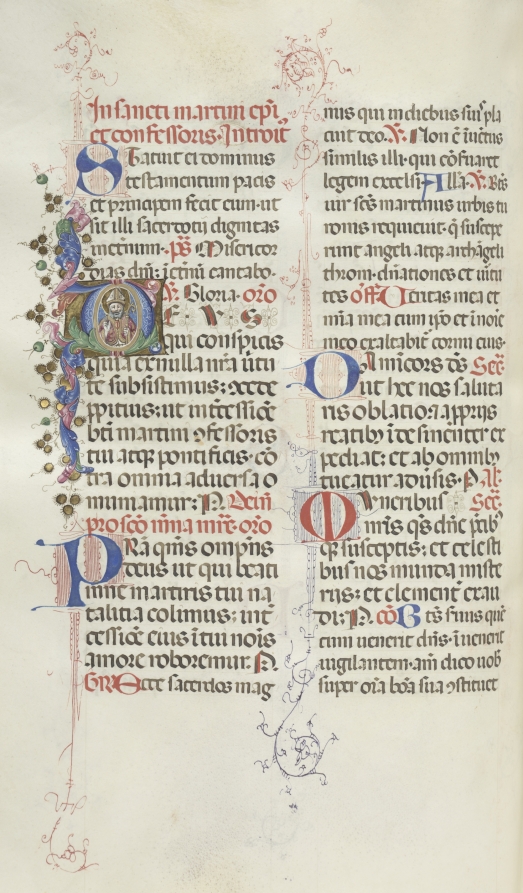 In sancti martini epi
et confessoris. Introit
Statuit ei dominus
testamentum pacis
et principem fecit eum. ut
sit illi sacerdotii dignitas
in eternum. ps Misericor
dias dni ī etnū cantabo.
V. Gloria. oro
DEVS
qui conspicis
quia ex nulla nra ūtu
te subsistimus: cōcede
ppitius: ut intcessiōe
bti martini ɔfessoris
tui atqꝫ pontificis. cō
tra omnia aduersa
muniamur: P. Dcim
pro scō mīna mre. oro
PRa qms omps
deus ut qui beati
mine martiris tui na
talitia colimus: int
cessiōe eius ī tui nois
amore roboremur. P.
Gr Ecce sacerdos mag
nus qui in diebus suis pla
cuit deo. V. Non ē īuētus
similis illi. qui cōseruaret
legem excelsi. Alla. V. Btus
uir scs martinus urbis tu
ronis requieuit. q suscepe
runt angeli atqꝫ archāgeli
throni. dnationes et uirtu
tes off Ueritas mea et
mia mea cum ipo et ī noie
meo exaltabit cornu eius.
Da misericors ds Sec
ut hec nos saluta
ris oblatio. a ppriis
reatibꝫ īdesinenter ex
pediat: et ab omnibꝫ
tueatur aduīsis. P. Al.
Muneribus Sec.
nris qs dne pcibꝫ
qꝫ susceptis: et celesti
bus nos munda miste
riis: et clementer exau
di: P. cō Btūs suus quē
cum uenerit dns. īuenerit
uigilantem. am dico uob
super oīa bōa sua ɔstituet